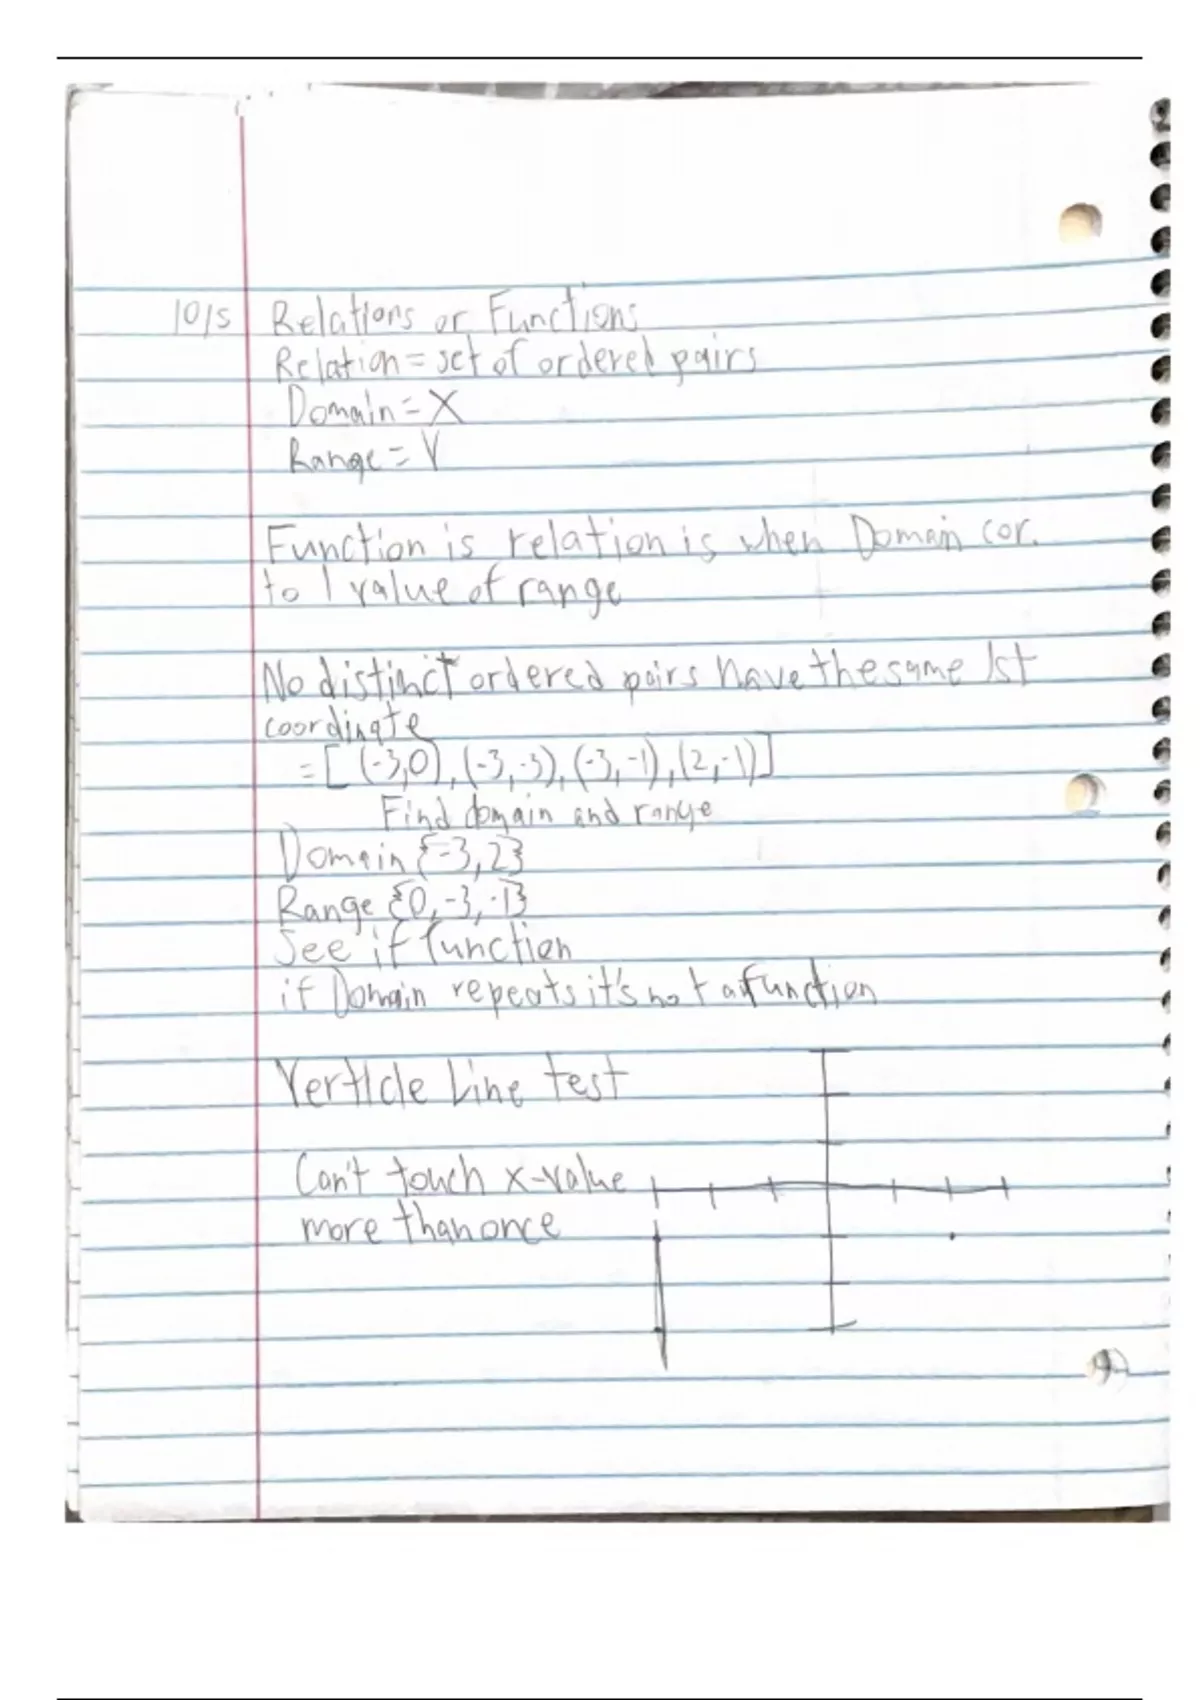 10/5 Relations or Functions
Relation = set of ordered pairs
Domain = X
Range = Y
Function is relation is when Domain cor.
to 1 value of range
No distinct ordered pairs have the same 1st
coordinate
= [(-3,0), (-3,-3), (-3,-1), (2,-1)]
Find domain and range
Domain {-3, 2}
Range {0, -3, -1}
See if function
if Domain repeats it's not a function
Verticle Line test
Can't touch x-value
more than once